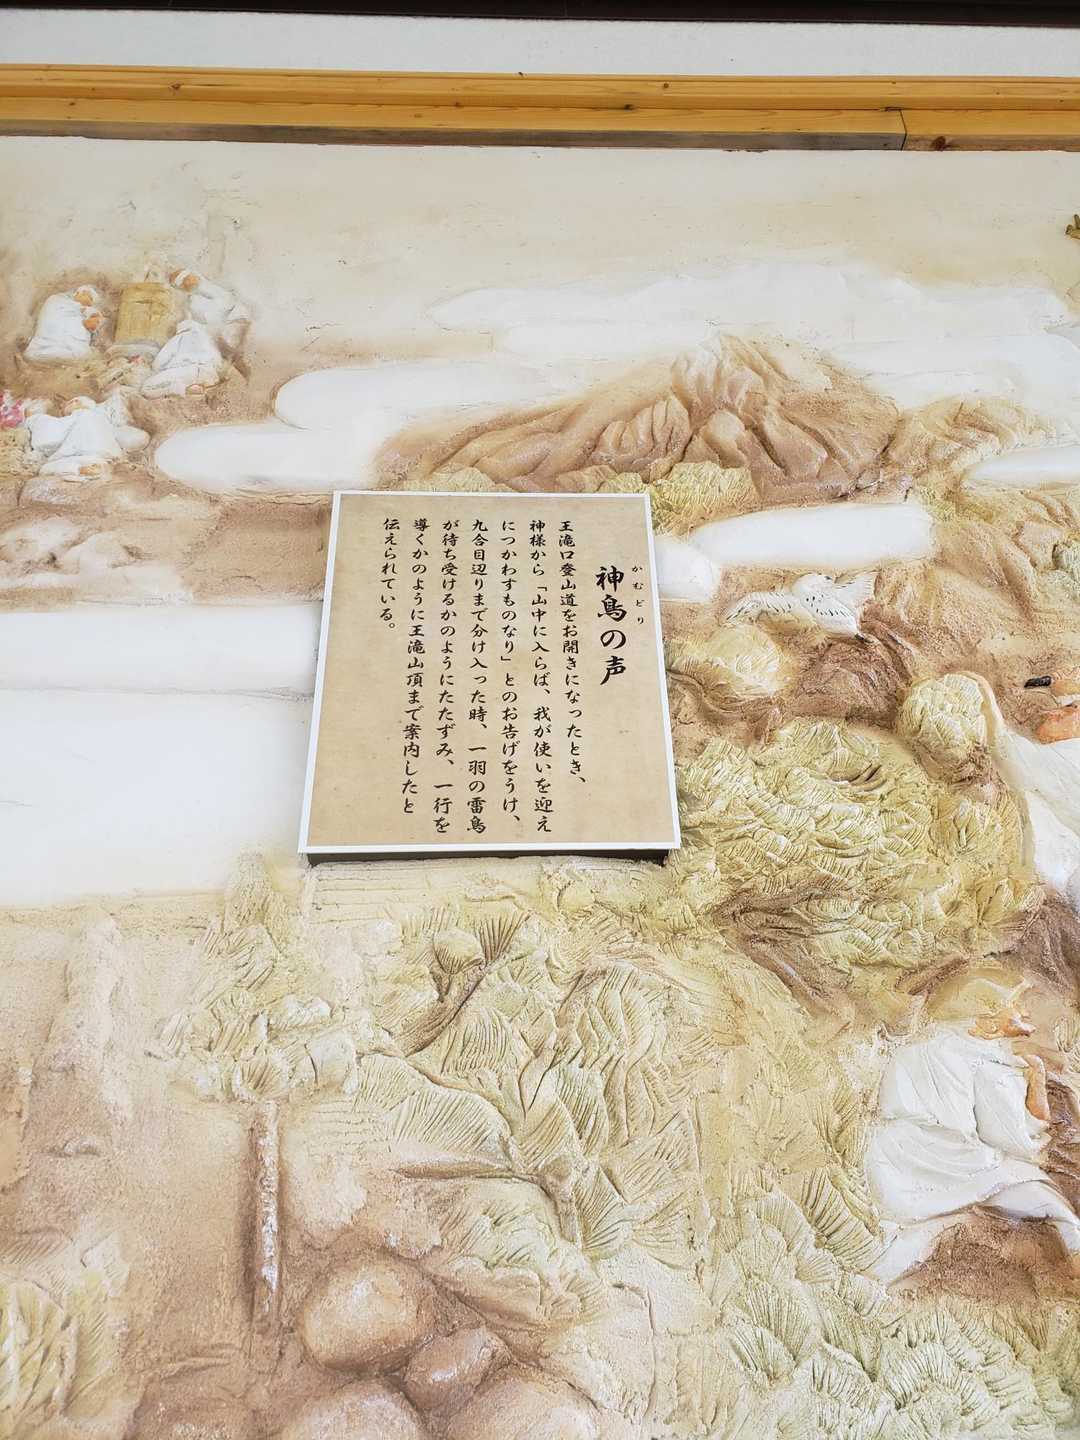 神鳥の声
かむどり
王滝口登山道をお開きになったとき、
神様から「山中に入らば、我が使いを迎え
につかわすものなり」とのお告げをうけ、
九合目辺りまで分け入った時、一羽の雷鳥
が待ち受けるかのようにたたずみ、一行を
導くかのように王滝山頂まで案内したと
伝えられている。